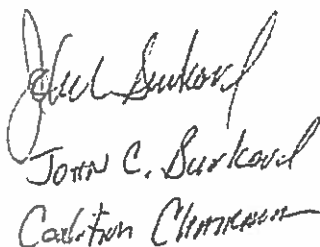 John Burkard
JOHN C. Burkard
Coalition Chairman